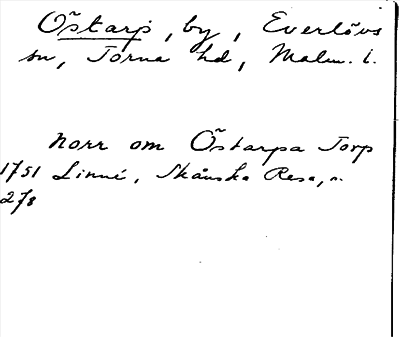 Östarp, by, Everlövs
sn, Torna hd, Malm. l.
norr om Östarpa Torp
1751 Linné, Skånska Resa, s.
278